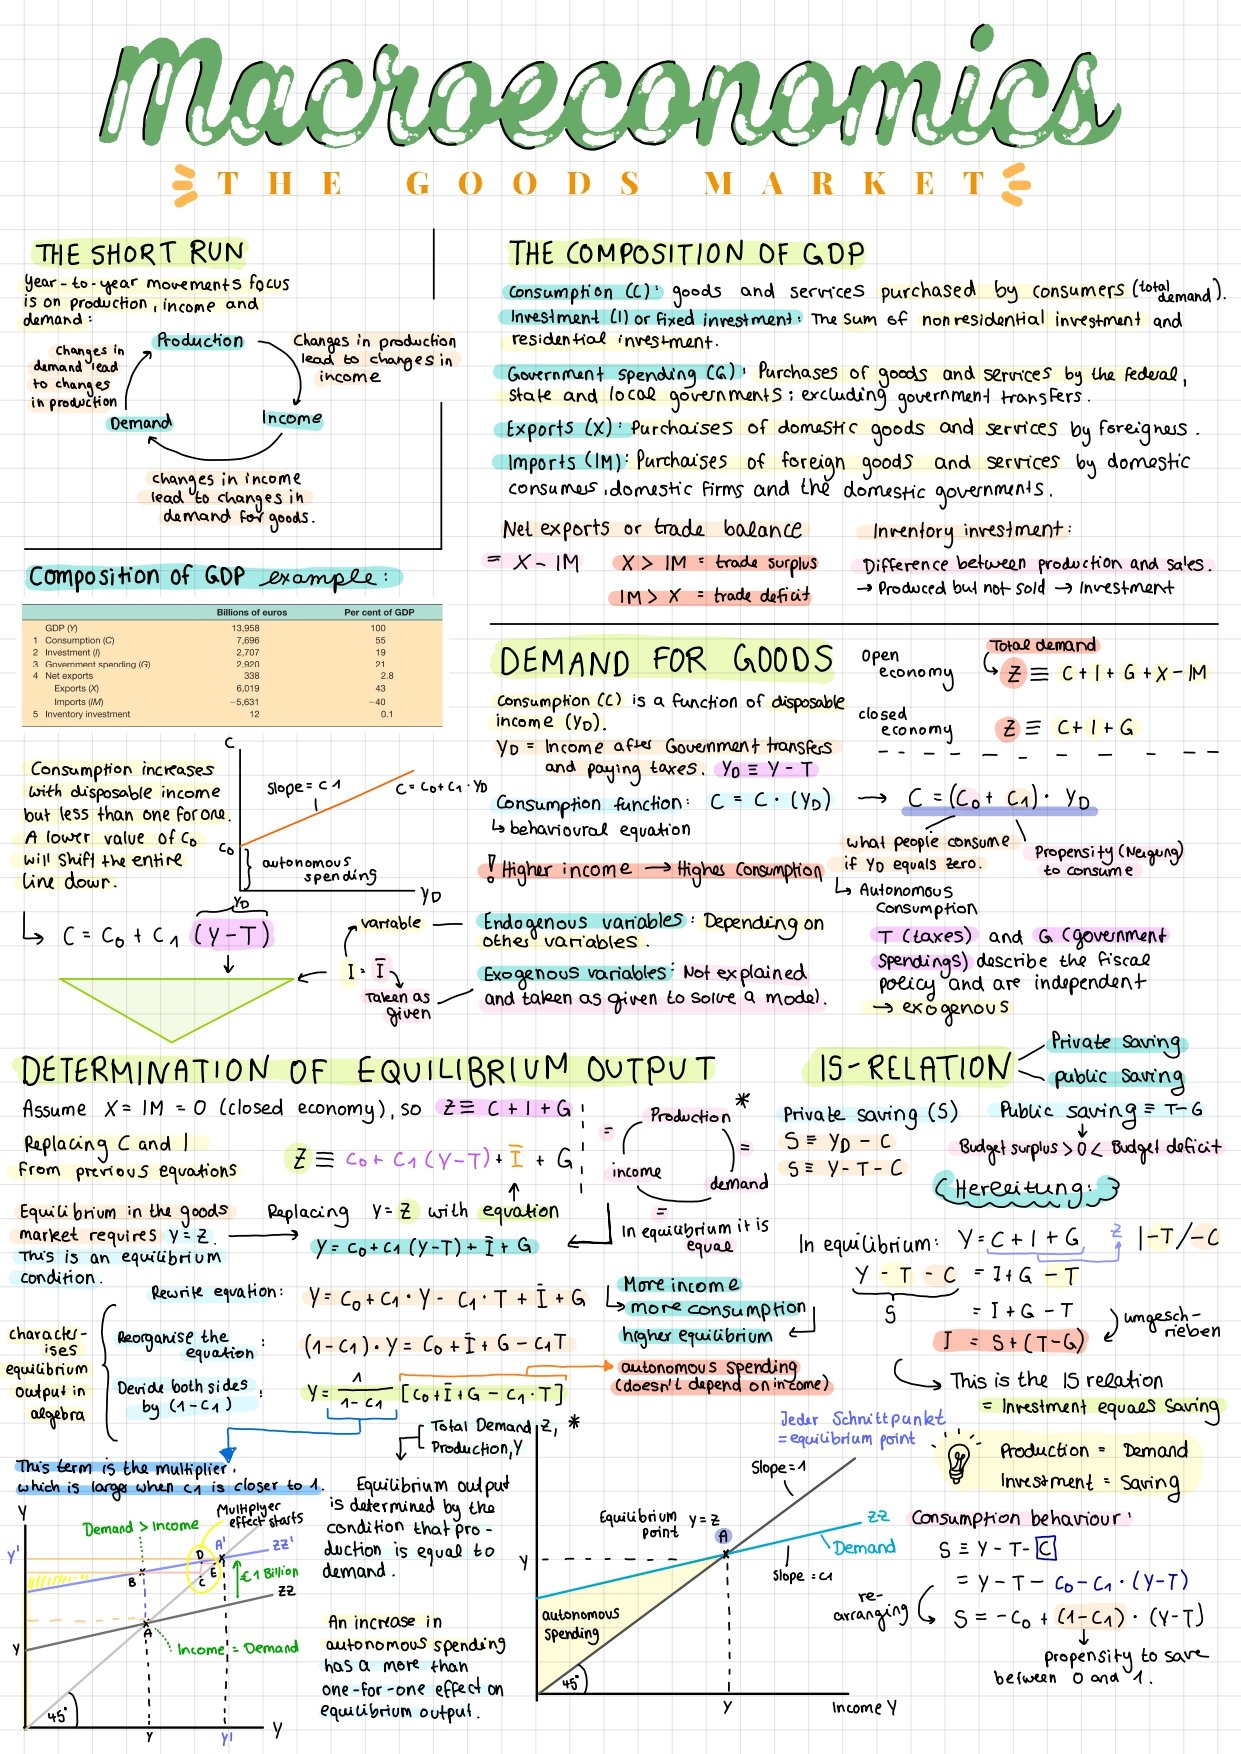 Macroeconomics
THE GOODS MARKET
THE SHORT RUN
Year-to-year movements focus
is on production, income and
demand:
Production
Changes in production
lead to changes in
income
Income
changes in income
lead to changes in
demand for goods.
Demand
Changes in
demand lead
to changes
in production
THE COMPOSITION OF GDP
Consumption (C): goods and services purchased by consumers (total demand).
Investment (I) or fixed investment: The sum of nonresidential investment and
residential investment.
Government spending (G): Purchases of goods and services by the federal,
state and local governments; excluding government transfers.
Exports (X): Purchaises of domestic goods and services by foreigners.
Imports (IM): Purchaises of foreign goods and services by domestic
consumes, domestic firms and the domestic governments.
Net exports or trade balance
= X - IM
X > IM = trade surplus
IM > X = trade deficit
Inventory investment:
Difference between production and sales.
→ Produced but not sold → Investment
Composition of GDP example:
Billions of euros Per cent of GDP
GDP (Y) 13,958 100
1 Consumption (C) 7,696 55
2 Investment (I) 2,707 19
3 Government spending (G) 2,920 21
4 Net exports 338 2.8
Exports (X) 6,019 43
Imports (IM) −5,631 −40
5 Inventory investment 12 0.1
Consumption increases
with disposable income
but less than one for one.
A lower value of C0
will shift the entire
line down.
C
slope = C1
C = C0 + C1 · YD
C0
autonomous
spending
YD
YD
↳ C = C0 + C1 (Y-T)
DEMAND FOR GOODS
Consumption (C) is a function of disposable
income (YD).
YD = Income after Government transfers
and paying taxes. YD ≡ Y - T
Consumption function: C = C · (YD)
↳ behavioural equation
! Higher income → Highes Consumption
Open
economy
Total demand
Z ≡ C + I + G + X - IM
closed
economy
Z ≡ C + I + G
→ C = (C0 + C1) · YD
what people consume
if YD equals zero.
↳ Autonomous
Consumption
Propensity (Neigung)
to consume
variable
I = Ī
Taken as
given
Endogenous variables: Depending on
other variables.
Exogenous variables: Not explained
and taken as given to solve a model.
T (taxes) and G (government
spendings) describe the fiscal
policy and are independent
→ exogenous
DETERMINATION OF EQUILIBRIUM OUTPUT
Assume X = IM = 0 (closed economy), so Z ≡ C + I + G
Replacing C and I
from previous equations
Z ≡ C0 + C1 (Y-T) + Ī + G
Equilibrium in the goods
market requires Y = Z.
This is an equilibrium
condition.
Replacing Y = Z with equation
Y = C0 + C1 (Y-T) + Ī + G
*
Production
=
demand
=
income
=
In equilibrium it is
equal
Rewrite equation: Y = C0 + C1 · Y - C1 · T + Ī + G
characte-
ises
equilibrium
output in
algebra
Reorganise the
equation:
(1-C1) · Y = C0 + Ī + G - C1T
Devide both sides
by (1-C1):
Y = 1/(1-C1) [C0 + Ī + G - C1 · T]
More income
↳ more consumption
higher equilibrium
autonomous spending
(doesn't depend on income)
This term is the multiplier.
which is larger when C1 is closer to 1.
IS-RELATION
Private saving
public saving
Private saving (S)
S ≡ YD - C
S ≡ Y - T - C
Public saving ≡ T-G
Budget surplus > 0 < Budget deficit
(Herleitung:)
In equilibrium: Y = C + I + G Z |-T/-C
Y - T - C = I + G - T
S = I + G - T
I = S + (T-G)
umgesch-
rieben
This is the IS relation
= Investment equals saving
Production = Demand
Investment = Saving
Y
Demand > Income
Multiplyer
effect starts
ZZ'
Y'
D
A'
B
C
E
€1 Billion
ZZ
A
Income = Demand
Y
45°
Y
Y'
Y
Equilibrium output
is determined by the
condition that pro-
duction is equal to
demand.
An increase in
autonomous spending
has a more than
one-for-one effect on
equilibrium output.
Total Demand Z,
Production, Y
*
Jeder Schnittpunkt
= equilibrium point
Slope = 1
Equilibrium
point
Y = Z
A
ZZ
Demand
slope = C1
Y
autonomous
spending
45°
Y
Income Y
Consumption behaviour:
S ≡ Y - T - C
= Y - T - C0 - C1 · (Y-T)
re-
arranging
S = -C0 + (1-C1) · (Y-T)
propensity to save
between 0 and 1.